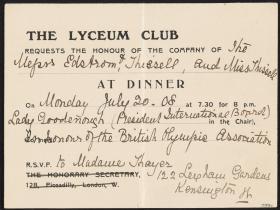 THE LYCEUM CLUB
REQUESTS THE HONOUR OF THE COMPANY OF The
Messrs Edstrom, Thiesell, and Miss Thiesell
AT DINNER
On Monday July 20. 08 at 7.30 for 8 p.m.
Lady Goodenough (President International Board) in the Chair,
honour of the British Olympic Association
R.S.V.P. to Madame Thayer
THE HONORARY SECRETARY, 122 Lexham Gardens
128, Piccadilly, London, W. Kensington W.